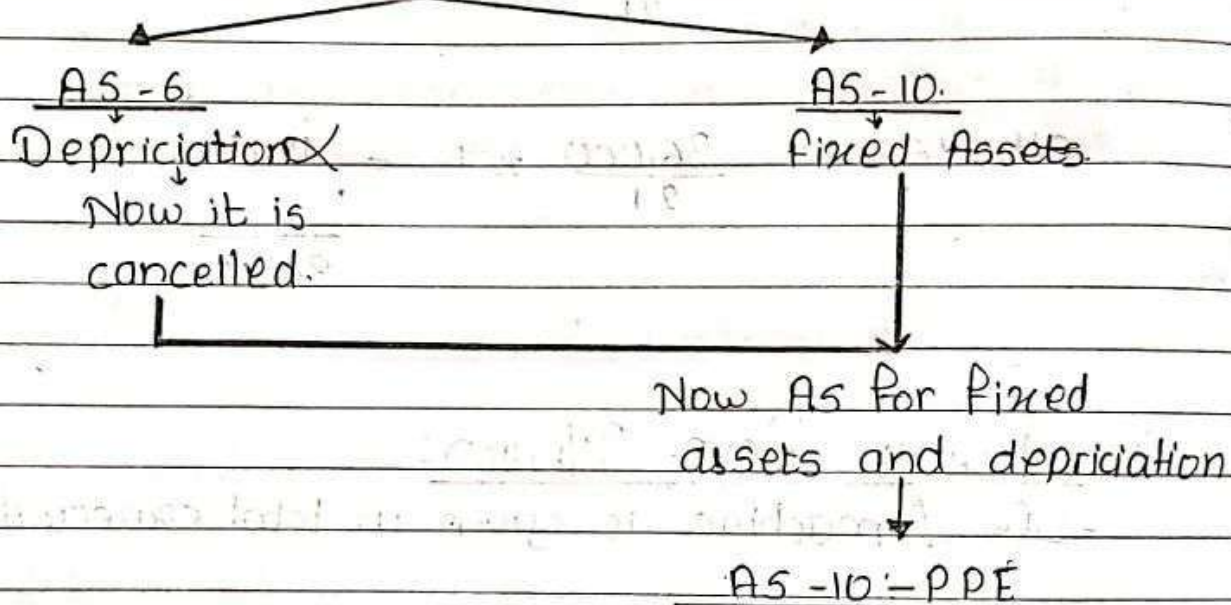 AS-6
Depriciation
Now it is
cancelled.
AS-10.
Fixed Assets.
Now As for fixed
assets and depriciation
AS-10:-PPE